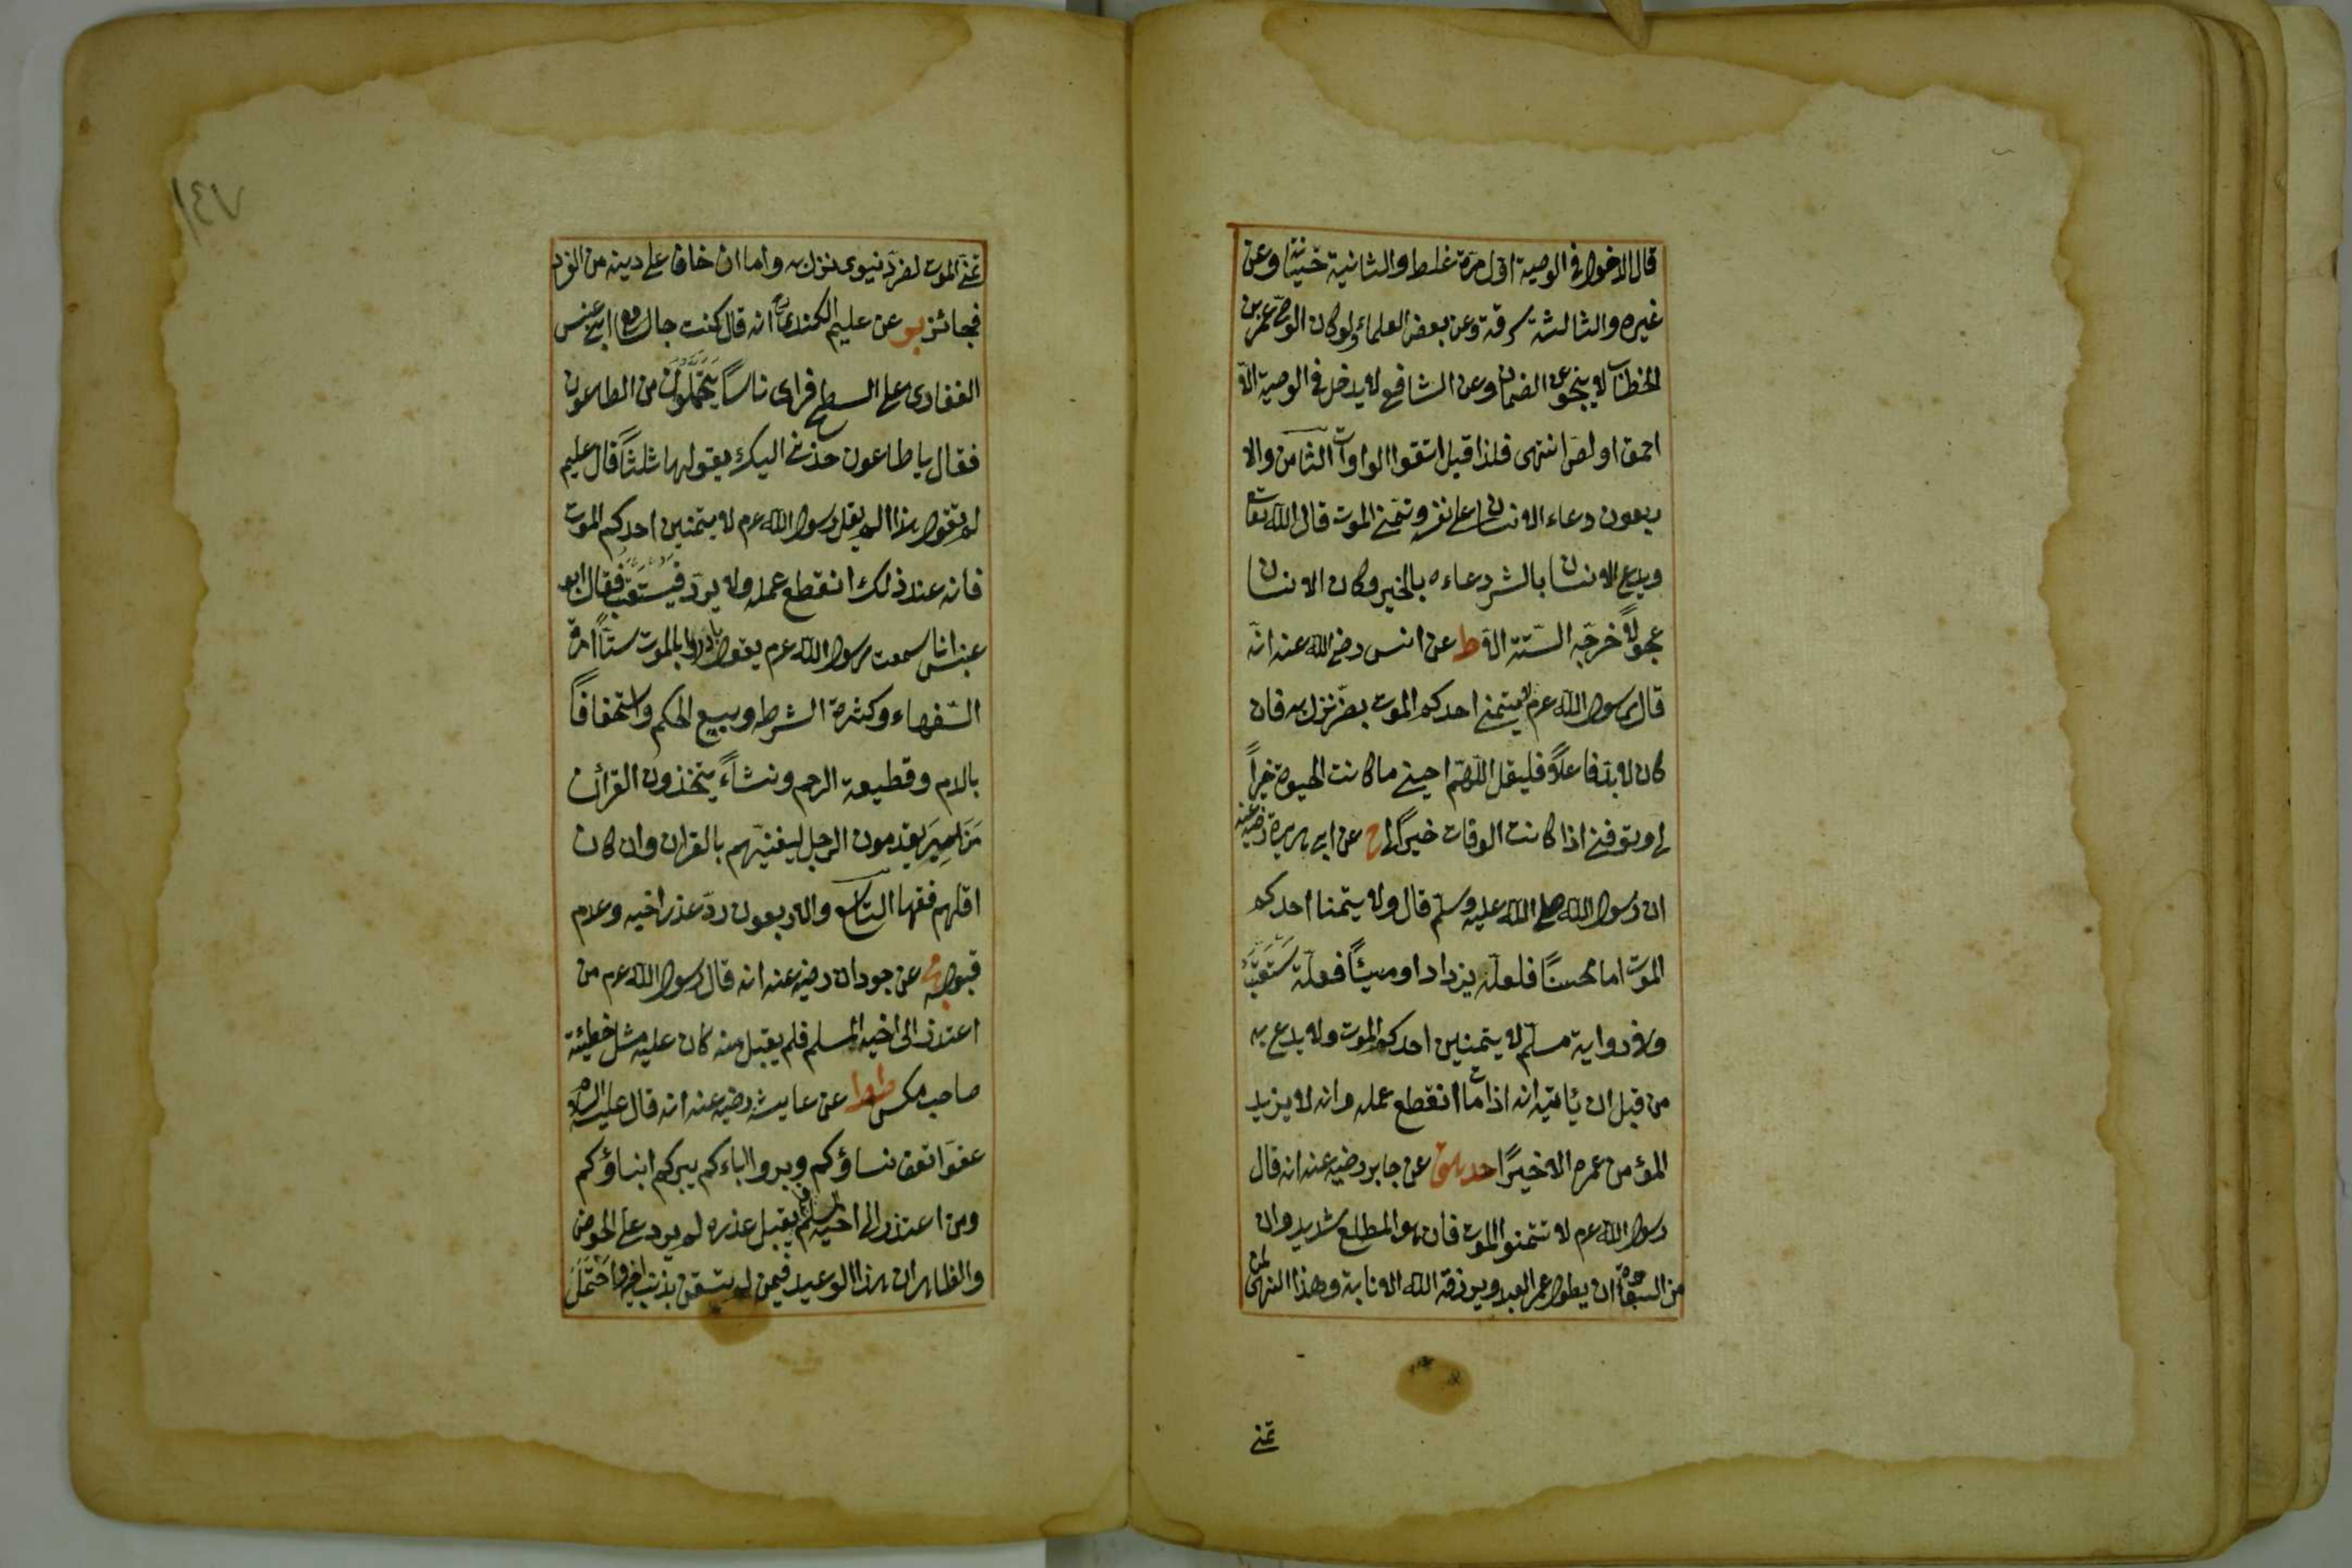 قال الدخول فى الوصية اول مرة غلط والثانية خيانة وعن
غيره والثالثة سرقة وعن بعض العلماء ولو كان الوصى عمر بن
الخطاب لا ينجو عن الضمان وعن الشافع لا يدخل فى الوصية الا
احمق او لص انتهى فلذا قيل اتقوا الواوات الثامن والا
ربعون دعاء الانسان على نفسه وتمنى الموت قال الله تعا
ويدع الانسان بالشر دعاءه بالخير وكان الانسان
عجولا خرجه الستة الا ط عن انس رضى الله عنه انه
قال رسول الله عم لا يتمنى احدكم الموت بضر نزل به فان
كان لا بد فاعلاً فليقل اللهم احينى ما كانت الحيوة خيراً
لى وتوفنى اذا كانت الوفات خيراً لى خ عن ابى هريرة رضيه عنه
ان رسول الله صلى الله عليه وسلم قال ولا يتمنا احدكم
الموت اما محسنًا فلعله يزداد او مسيئًا فعله يستعتب
وفى رواية مسلم لا يتمنين احدكم الموت ولا يدع به
من قبل ان يأتيه انه اذا مات انقطع عمله وانه لا يزيد
المؤمن عمره الا خيرًا حد هق عن جابر رضيه عنه انه قال
رسول الله عم لا تتمنوا الموت فان هو المطلع شديد وان
من السعادة ان يطول عمر العبد ويرزقه الله الانابة وهذا النهى لمن
تمنى
١٤٧
تمنى الموت لضر دنيوى نزل به واما ان خاف على دينه من
فجائز بر عن عليم الكندى انه قال كنت جالسا مع ابى عنبس
الغفارى على السطح فراى ناسًا يتحملون من الطاعون
فقال يا طاعون خذنى اليك يقولها ثلثاً قال عليم
لم تقول هذا الم يقل رسول الله عم لا يتمنين احدكم الموت
فانه عند ذلك انقطع عمله ولا يرد فيستعتب فقال ابو
عنبس انا سمعت رسول الله عم يقول بادروا بالموت ستاً امرة
السفهاء وكثرة الشرط وبيع الحكم واستخفافاً
بالدم وقطيعة الرحم ونشاءً يتخذون القرأن
مزامير يقدمون الرجل ليغنيهم بالقران وان كان
اقلهم فقها التاسع والاربعون رد عذر اخيه وعدم
قبوله عن جودان رضيه عنه انه قال رسول الله عم من
اعتذر الى اخيه المسلم فلم يقبل منه كان عليه مثل خطيئة
صاحب مكس طط عن عايشه رضيه عنه انه قال عليه السلام
عفوا تعف نساؤكم وبروا اباءكم يبركم ابناؤكم
ومن اعتذر الى اخيه المسلم فلم يقبل عذره لم يرد على الحوض
والظاهر ان هذا الوعيد فيمن لم يتيقن بذنب اخيه واحتمل